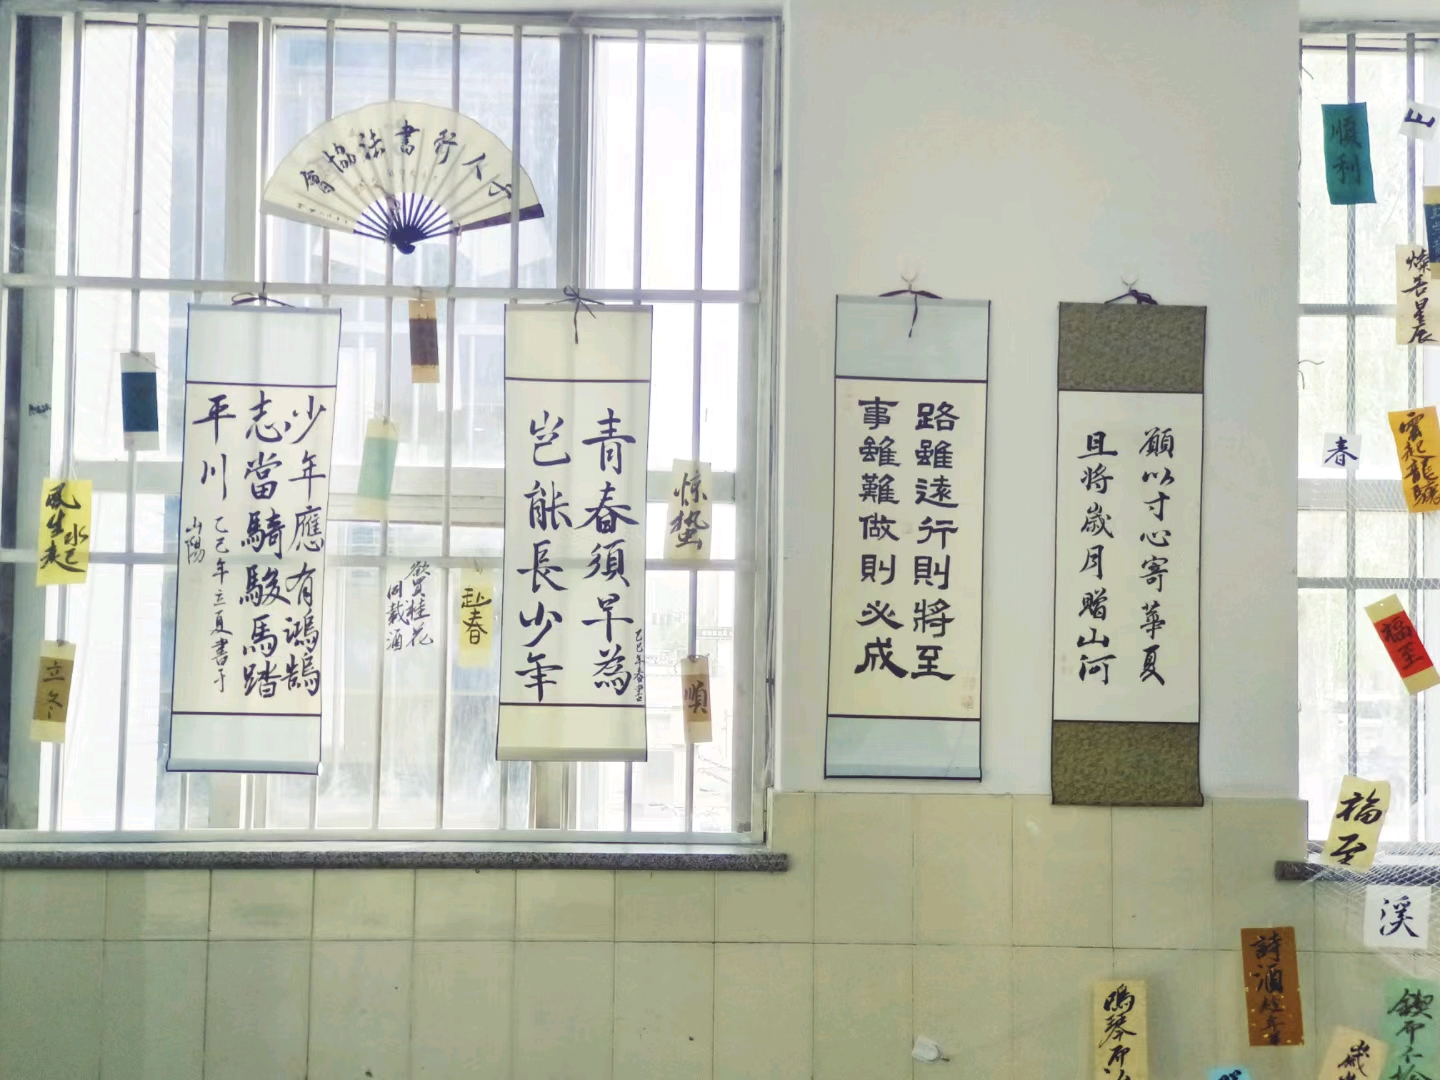 書法協會
少年應有鴻鵠
志當騎駿馬踏
平川
乙巳年立夏書于
山陽
青春須早為
豈能長少年
乙巳年春書
路雖遠行則將至
事雖難做則必成
願以寸心寄華夏
且将歲月贈山河
風生水起
立冬
欲買桂花
同載酒
赴春
惊蛰
順
順利
山
燦若星辰
春
雲起龍驤
福至
福至
溪
詩酒趁年華
鳴琴而
鍥而不捨
歲